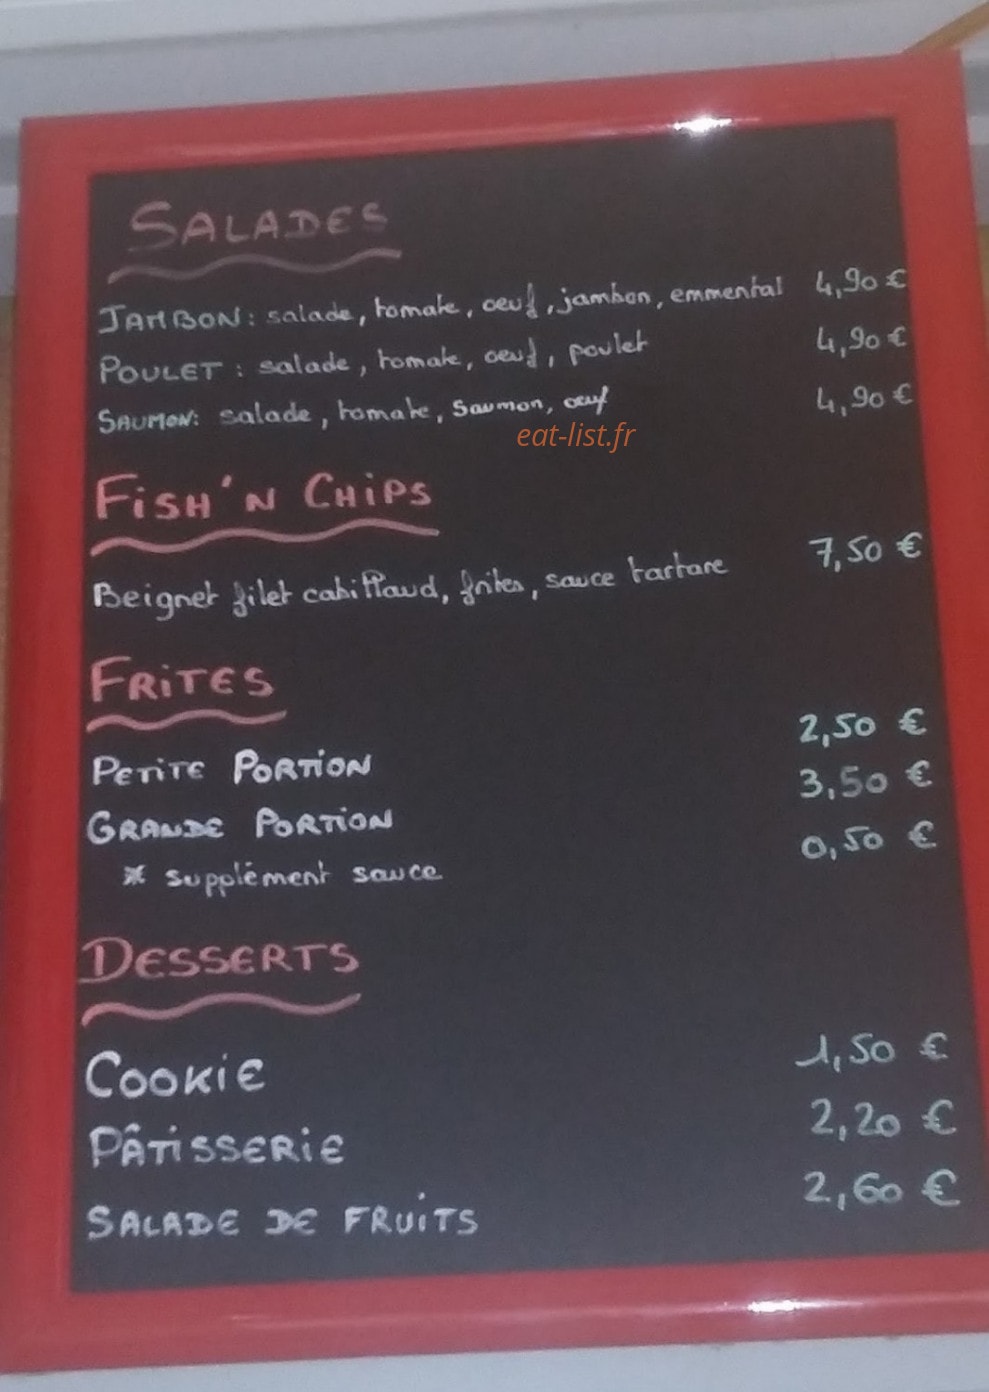 SALADES
JAMBON : salade, tomate, oeuf, jambon, emmental 4,90 €
POULET : salade, tomate, oeuf, poulet 4,90 €
SAUMON : salade, tomate, saumon, oeuf 4,90 €
eat-list.fr
FISH'N CHIPS
Beignet filet cabillaud, frites, sauce tartare 7,50 €
FRITES
PETITE PORTION 2,50 €
GRANDE PORTION 3,50 €
* supplément sauce 0,50 €
DESSERTS
COOKIE 1,50 €
PÂTISSERIE 2,20 €
SALADE DE FRUITS 2,60 €